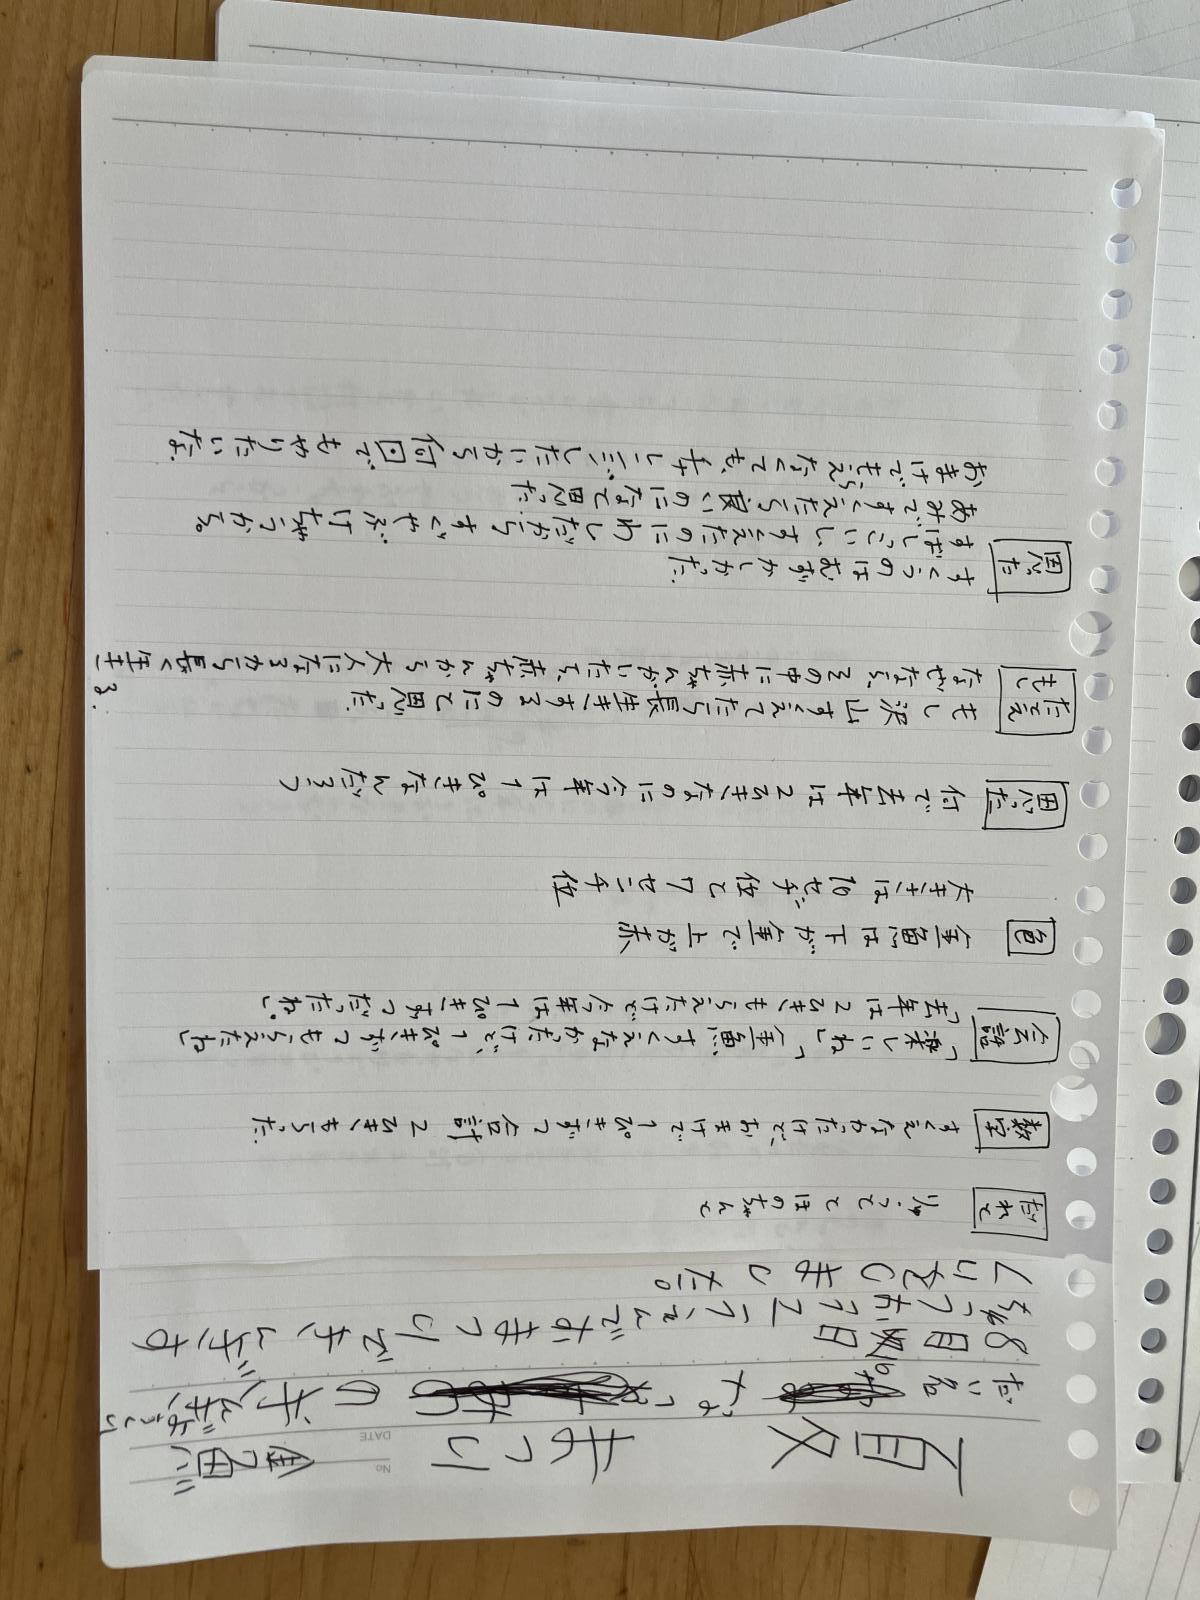 夏まつり
だい名 の
8月16日
おまつりで、きんぎょす
くいをしました。
だれと とほのちゃんと
数字 すくえなかたけど、おまけで1ぴきずつ合計2ひきもらった.
会話 「楽しいね」「金魚、すくえなかたけど、1ぴきずつもらえたね」
「去年は2ひきもらえたけど今年は1ぴきずつだったね。」
色 金魚は下が金で上が赤
大きさは10センチ位と7センチ位
思った 何で去年は2ひきなのに今年は1ぴきなんだろう
たとえもし もし沢山すくえてたら長生きするのにと思った.
なぜなら、その中に赤ちゃんがいたら、赤ちゃんから大人になるから長く生き
る.
思った すくうのはむずかしかった.
すばしっこいし、すくえたのにわしだからすぐやぶけちゃうから。
あみですくえたら良いのになと思った.
おまけでもえらなくても、チャレンジしたいから何回でもやりたいな.
No
DATE